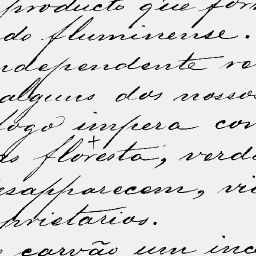 producto que for
do fluminense.
ndependente re
alguns dos nosso
logo impera con
as floresta, verd
esapparecem, vi
prietarios.
carvão um inc